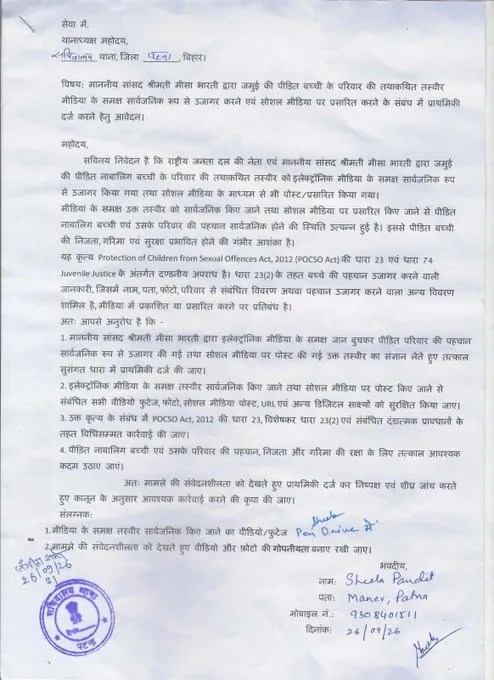 सेवा में,
थानाध्यक्ष महोदय,
सचिवालय थाना, जिला पटना, बिहार।
विषय: माननीय सांसद श्रीमती मीसा भारती द्वारा जमुई की पीड़ित बच्ची के परिवार की तथाकथित तस्वीर
मीडिया के समक्ष सार्वजनिक रूप से उजागर करने एवं सोशल मीडिया पर प्रसारित करने के संबंध में प्राथमिकी
दर्ज करने हेतु आवेदन।
महोदय,
सविनय निवेदन है कि राष्ट्रीय जनता दल की नेता एवं माननीय सांसद श्रीमती मीसा भारती द्वारा जमुई
की पीड़ित नाबालिग बच्ची के परिवार की तथाकथित तस्वीर को इलेक्ट्रॉनिक मीडिया के समक्ष सार्वजनिक रूप
से उजागर किया गया तथा सोशल मीडिया के माध्यम से भी पोस्ट/प्रसारित किया गया।
मीडिया के समक्ष उक्त तस्वीर को सार्वजनिक किए जाने तथा सोशल मीडिया पर प्रसारित किए जाने से पीड़ित
नाबालिग बच्ची एवं उसके परिवार की पहचान सार्वजनिक होने की स्थिति उत्पन्न हुई है। इससे पीड़ित बच्ची
की निजता, गरिमा एवं सुरक्षा प्रभावित होने की गंभीर आशंका है।
यह कृत्य Protection of Children from Sexual Offences Act, 2012 (POCSO Act) की धारा 23 एवं धारा 74
Juvenile Justice के अंतर्गत दण्डनीय अपराध है। धारा 23(2) के तहत बच्चे की पहचान उजागर करने वाली
जानकारी, जिसमें नाम, पता, फोटो, परिवार से संबंधित विवरण अथवा पहचान उजागर करने वाला अन्य विवरण
शामिल है, मीडिया में प्रकाशित या प्रसारित करने पर प्रतिबंध है।
अतः आपसे अनुरोध है कि -
1. माननीय सांसद श्रीमती मीसा भारती द्वारा इलेक्ट्रॉनिक मीडिया के समक्ष जान बुचकर पीड़ित परिवार की पहचान
सार्वजनिक रूप से उजागर की गई तथा सोशल मीडिया पर पोस्ट की गई उक्त तस्वीर का संज्ञान लेते हुए तत्काल
सुसंगत धारा में प्राथमिकी दर्ज की जाए।
2. इलेक्ट्रॉनिक मीडिया के समक्ष तस्वीर सार्वजनिक किए जाने तथा सोशल मीडिया पर पोस्ट किए जाने से
संबंधित सभी वीडियो फुटेज, फोटो, सोशल मीडिया पोस्ट, URL एवं अन्य डिजिटल साक्ष्यों को सुरक्षित किया जाए।
3. उक्त कृत्य के संबंध में POCSO Act, 2012 की धारा 23, विशेषकर धारा 23(2) एवं संबंधित दंडात्मक प्रावधानों के
तहत विधिसम्मत कार्रवाई की जाए।
4. पीड़ित नाबालिग बच्ची एवं उसके परिवार की पहचान, निजता और गरिमा की रक्षा के लिए तत्काल आवश्यक
कदम उठाए जाएं।
अतः मामले की संवेदनशीलता को देखते हुए प्राथमिकी दर्ज कर निष्पक्ष एवं शीघ्र जांच करते
हुए कानून के अनुसार आवश्यक कार्रवाई करने की कृपा की जाए।
संलग्नक:
1.मीडिया के समक्ष तस्वीर सार्वजनिक किए जाने का वीडियो/फुटेज Pen Drive में
2.मामले की संवेदनशीलता को देखते हुए वीडियो और फ़ोटो की गोपनीयता बनाए रखी जाए।
भवदीय,
26/09/26
नाम: Sheela Pandit
पता: Maner, Patna
मोबाइल नं.: 9308401511
दिनांक: 26/09/26
सचिवालय थाना
पटना